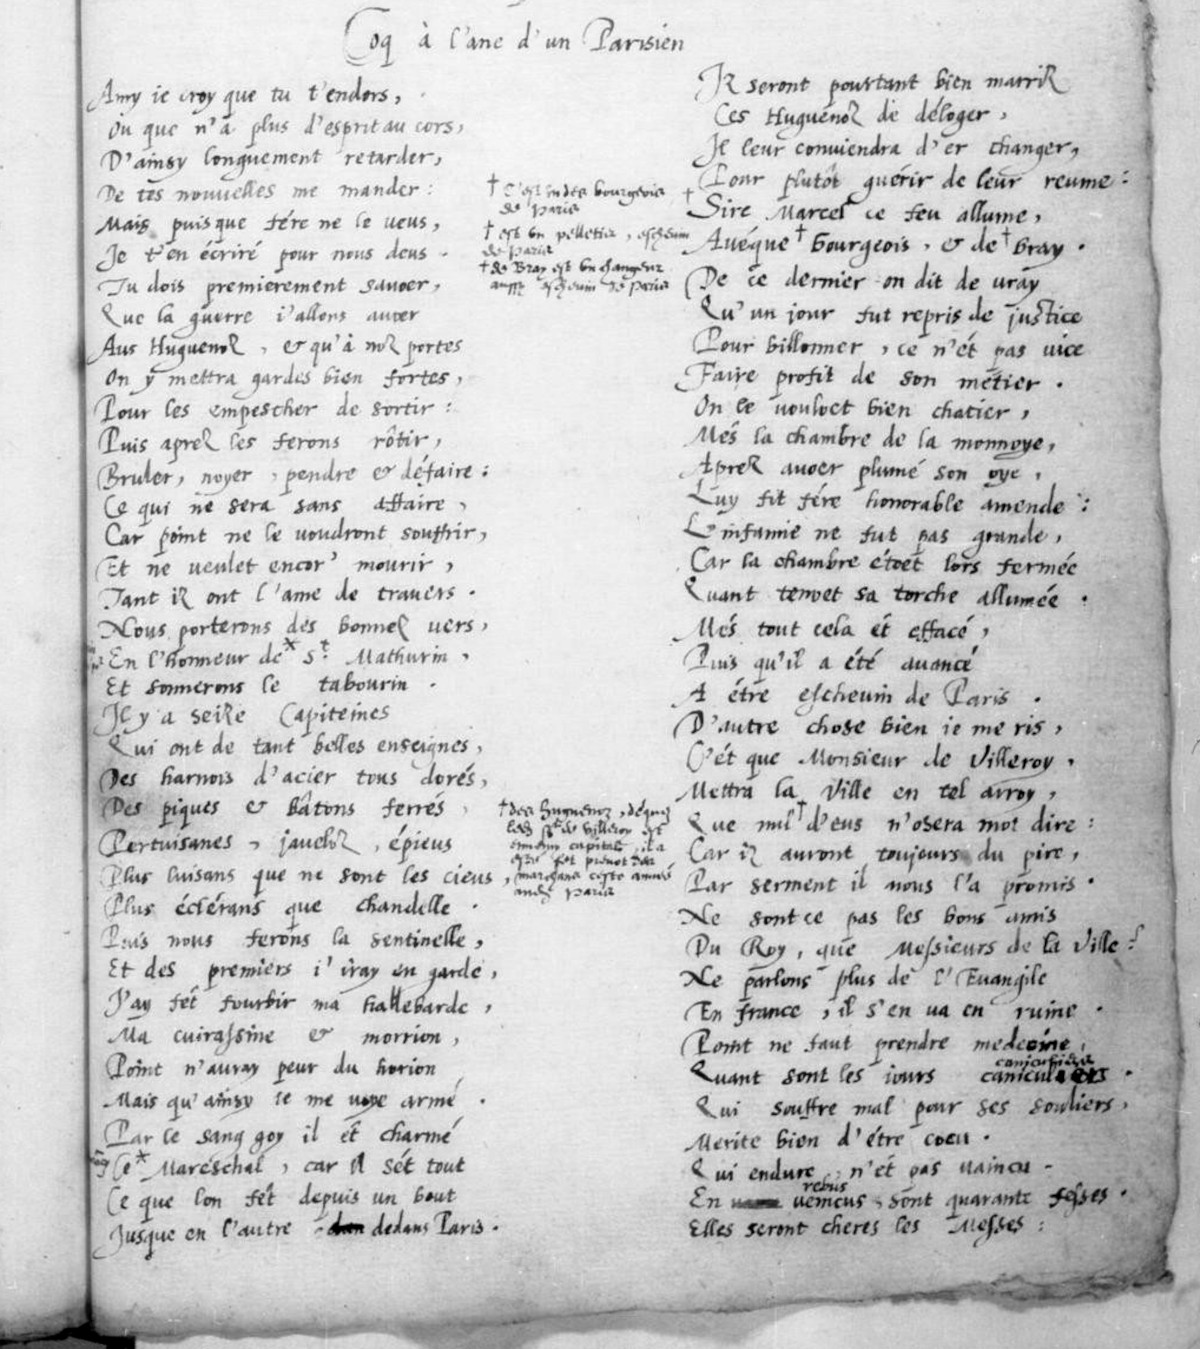 Coq à l'ane d'un Parisien
Amy ie croy que tu t'endors,
Ou que n'a plus d'esprit au cors,
D'ainsy longuement retarder,
De tes nouvelles me mander:
Mais puisque fére ne le veus,
Je t'en écriré pour nous deus.
Tu dois premierement savoer,
Que la guerre i'allons avoer
Aus Huguenoz, & qu'à noz portes
On y mettra gardes bien fortes,
Pour les empescher de sortir:
Puis aprez les ferons rôtir,
Bruler, noyer, pendre & défaire:
Ce qui ne sera sans affaire,
Car point ne le voudront souffrir,
Et ne veulet encor' mourir,
Tant iz ont l'ame de travers.
Nous porterons des bonnez vers,
En l'honneur de* St. Mathurin,
Et sonnerons le tabourin.
Il y a seize Capiteines
Qui ont de tant belles enseignes,
Des harnois d'acier tous dorés,
Des piques & bâtons ferrés,
Pertuisanes, javeloz, épieus
Plus luisans que ne sont les cieus,
Plus éclérans que chandelle.
Puis nous ferons la sentinelle,
Et des premiers i'iray en garde,
J'ay fét fourbir ma hallebarde,
Ma cuirassine & morrion,
Point n'auray peur du horion
Mais qu'ainsy ie me voye armé.
Par le sang goy il ét charmé
Ce* Mareschal, car il sét tout
Ce que lon fét depuis un bout
Jusque en l'autre dedans Paris.
† C'est un des bourgeois
de Paris
† est un pelletier, eschevin
de Paris
† de Bray est un changeur
aussy eschevin de Paris
† des huguenoz, déquez
ledit Sr de Villeroy est
ennemy capital, il a
esté fét prevot des
marchans ceste année
Paris
Iz seront pourtant bien marriz
Ces Huguenoz de déloger,
Il leur conviendra d'er changer,
Pour plutôt guérir de leur reume:
† Sire Marcel ce feu allume,
Avéque † bourgeois, & de † bray.
De ce dernier on dit de vray
Qu'un jour fut repris de justice
Pour billonner, ce n'ét pas vice
Faire profit de son métier.
On le vouloet bien chatier,
Més la chambre de la monnoye,
Aprez avoer plumé son oye,
Luy fit fére honorable amende:
L'infamie ne fut pas grande,
Car la chambre étoet lors fermée
Quant tenoet sa torche allumée.
Més tout cela ét effacé,
Puis qu'il a été avancé
A étre eschevin de Paris.
D'autre chose bien ie me ris,
C'ét que Monsieur de Villeroy,
Mettra la Ville en tel arroy,
Que nul † d'eus n'osera mot dire:
Car iz auront toujours du pire,
Par serment il nous l'a promis.
Ne sont ce pas les bons amis
Du Roy, que Messieurs de la Ville?
Ne parlons plus de l'Evangile
En france, il s'en va en ruine.
Point ne faut prendre medecine,
Quant sont les iours caniculiers.
Qui souffre mal pour ses souliers,
Merite bien d'étre cocu.
Qui endure, n'ét pas vaincu.
En rebus venicus, sont quarante fesses.
Elles seront cheres les Messes: